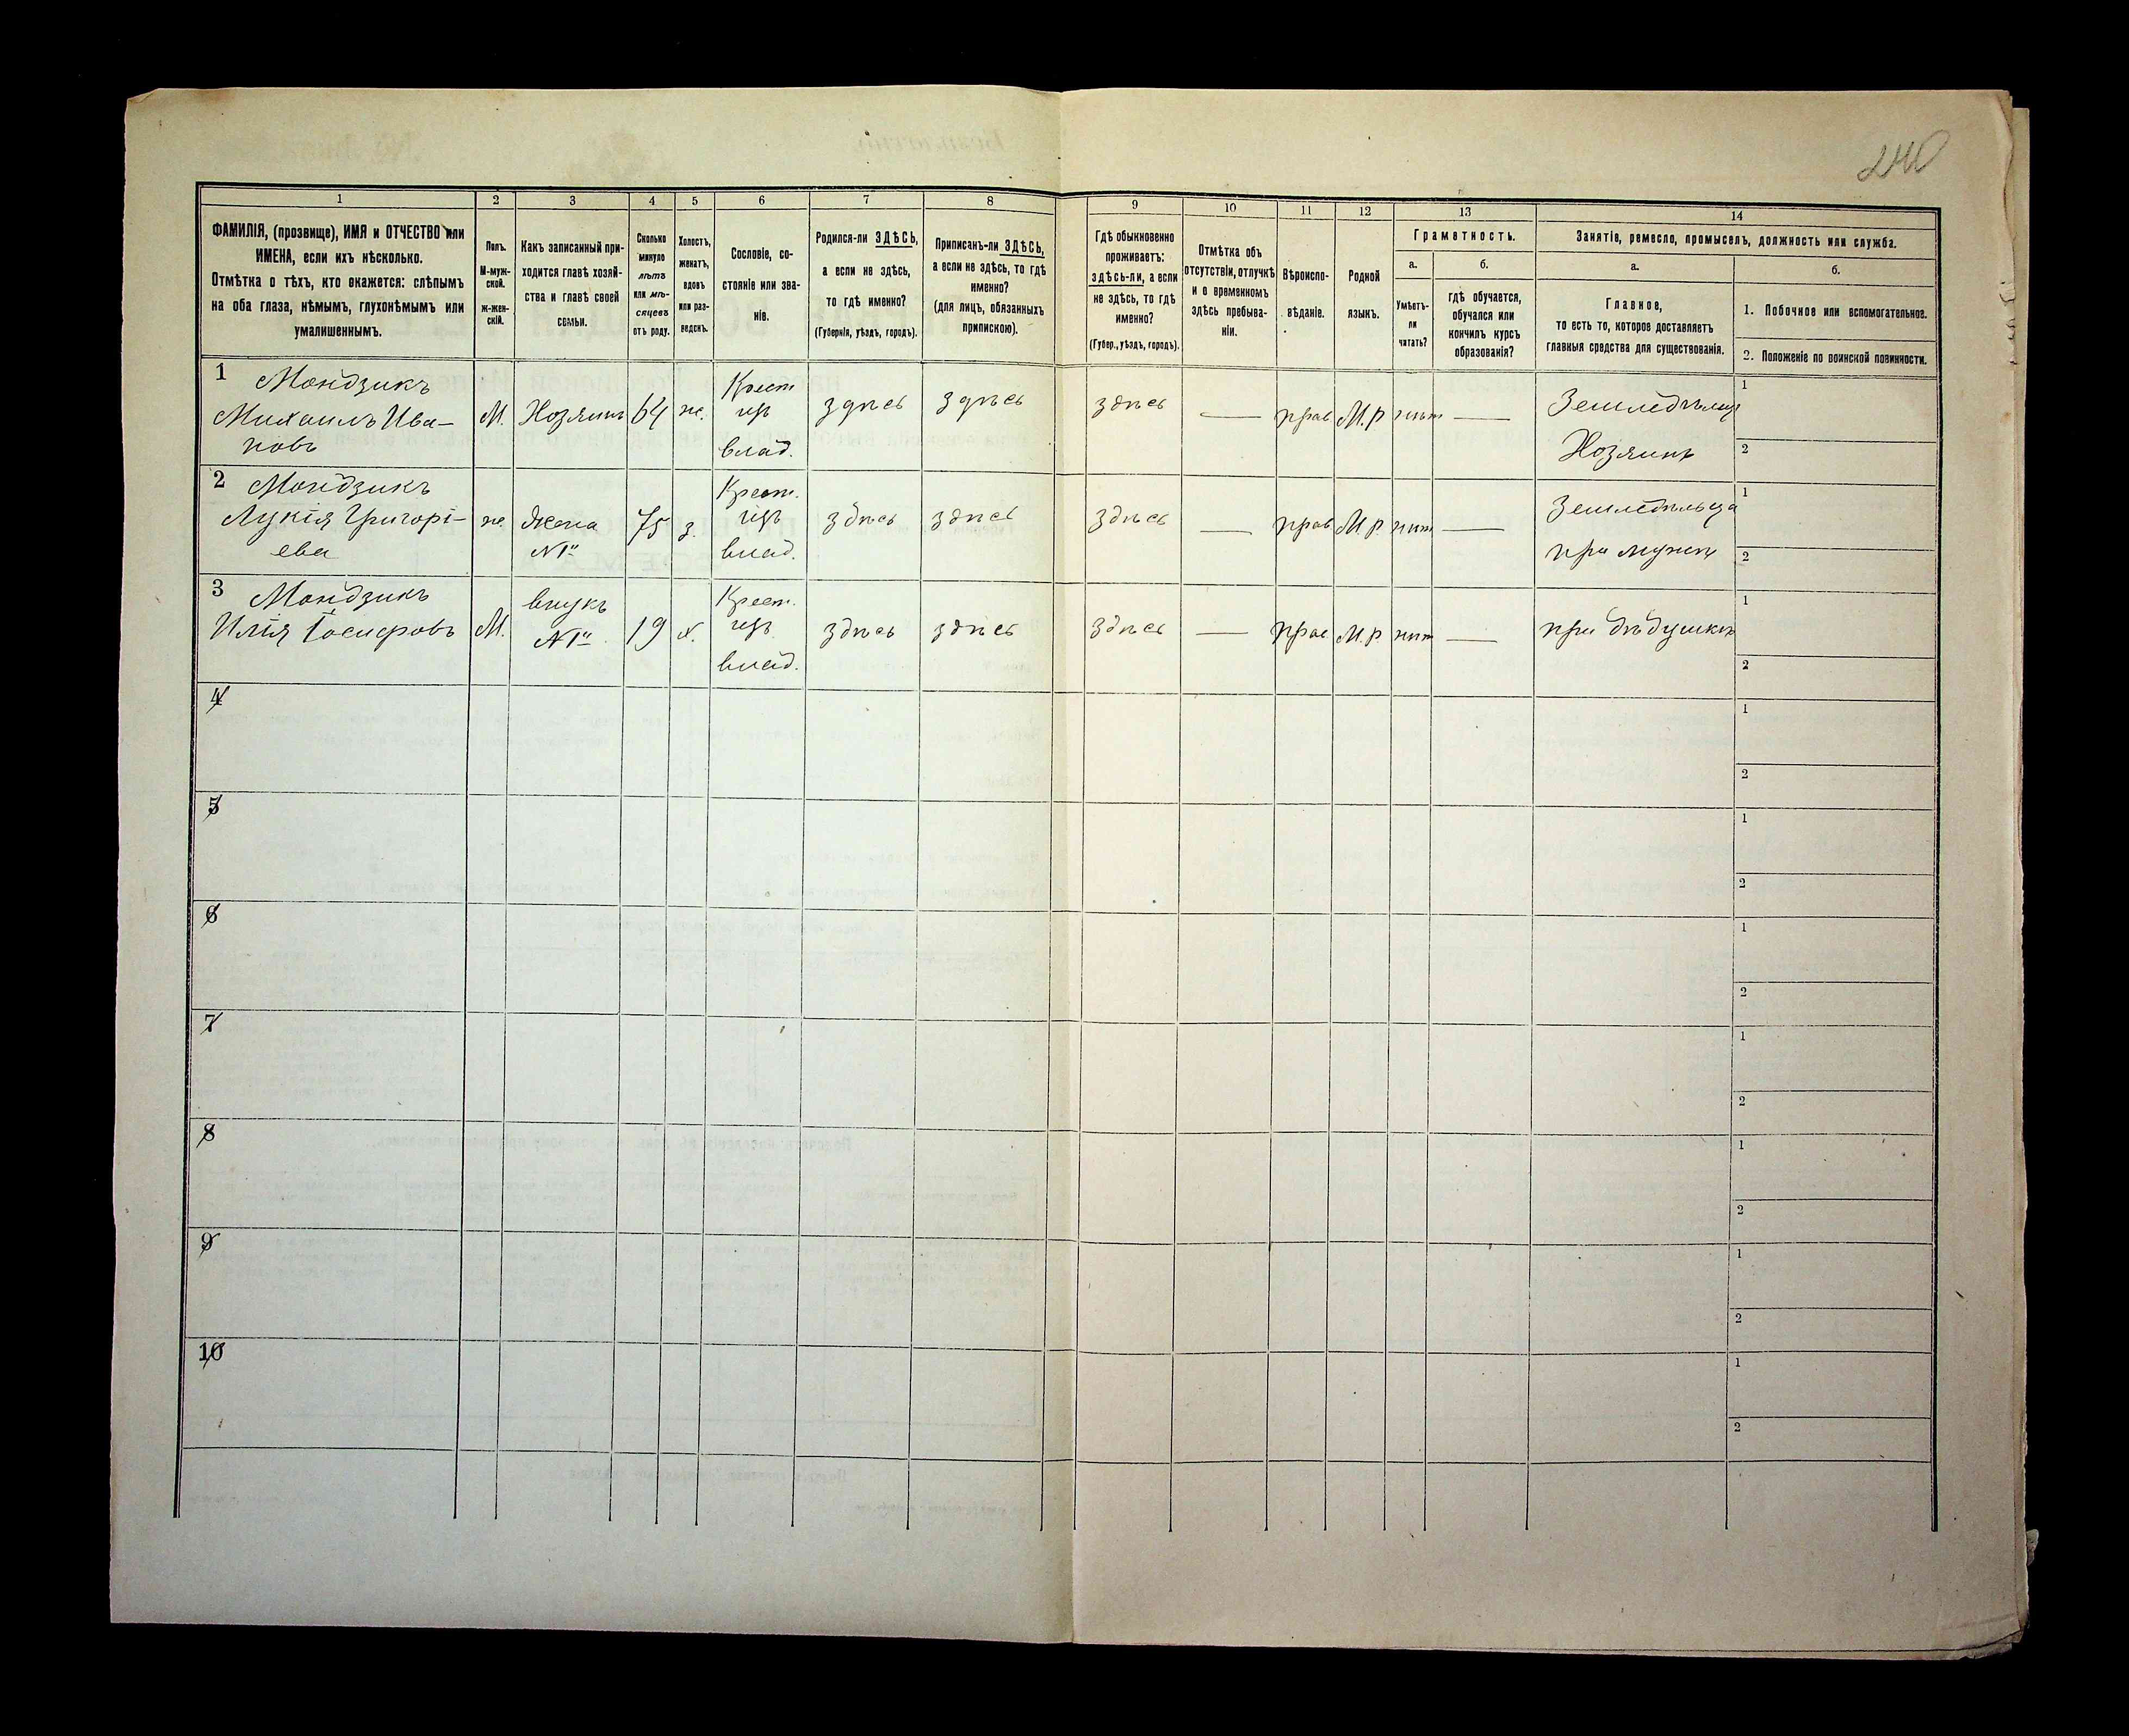 240
1 2 3 4 5 6 7 8 9 10 11 12 13 14
ФАМИЛІЯ, (прозвище), ИМЯ и ОТЧЕСТВО или
ИМЕНА, если ихъ нѣсколько.
Отмѣтка о тѣхъ, кто окажется: слѣпымъ
на оба глаза, нѣмымъ, глухонѣмымъ или
умалишеннымъ.
Полъ.
М-муж-
ской.
ж-жен-
скій.
Какъ записанный при-
ходится главѣ хозяй-
ства и главѣ своей
семьи.
Сколько
минуло
лѣтъ
или мѣ-
сяцевъ
отъ роду.
Холостъ,
женатъ,
вдовъ
или раз-
веденъ.
Сословіе, со-
стояніе или зва-
ніе.
Родился-ли ЗДѢСЬ,
а если не здѣсь,
то гдѣ именно?
(Губернія, уѣздъ, городъ).
Приписанъ-ли ЗДѢСЬ,
а если не здѣсь, то гдѣ
именно?
(для лицъ, обязанныхъ
припискою).
Гдѣ обыкновенно
проживаетъ:
здѣсь-ли, а если
не здѣсь, то гдѣ
именно?
(Губер., уѣздъ, городъ).
Отмѣтка объ
отсутствіи, отлучкѣ
и о временномъ
здѣсь пребыва-
ніи.
Вѣроиспо-
вѣданіе.
Родной
языкъ.
Грамотность.
а.
Умѣетъ-
ли
читать?
б.
гдѣ обучается,
обучался или
кончилъ курсъ
образованія?
Занятіе, ремесло, промыселъ, должность или служба.
а.
Главное,
то есть то, которое доставляетъ
главныя средства для существованія.
б.
1. Побочное или вспомогательное.
2. Положеніе по воинской повинности.
1 Мондзикъ
Михаилъ Ива-
новъ
М.
Хозяинъ
64
ж.
Крест
изъ
влад.
здѣсь
здѣсь
здѣсь
—
прав
М.р
нѣт
—
Земледѣлец
Хозяинъ
1
2
2 Мондзикъ
Лукія Григорі-
ева
ж.
Жена
№1й
75
з.
Крест.
изъ
влад.
здѣсь
здѣсь
здѣсь
—
прав
М.р.
нѣт
—
Земледѣльца
при мужѣ
1
2
3 Мондзикъ
Илія Іосифовъ
М.
внукъ
№1й
19
х.
Крест.
изъ
влад.
здѣсь
здѣсь
здѣсь
—
прав
М.р.
нѣт
—
при дѣдушкѣ
1
2
4
1
2
5
1
2
6
1
2
7
1
2
8
1
2
9
1
2
10
1
2